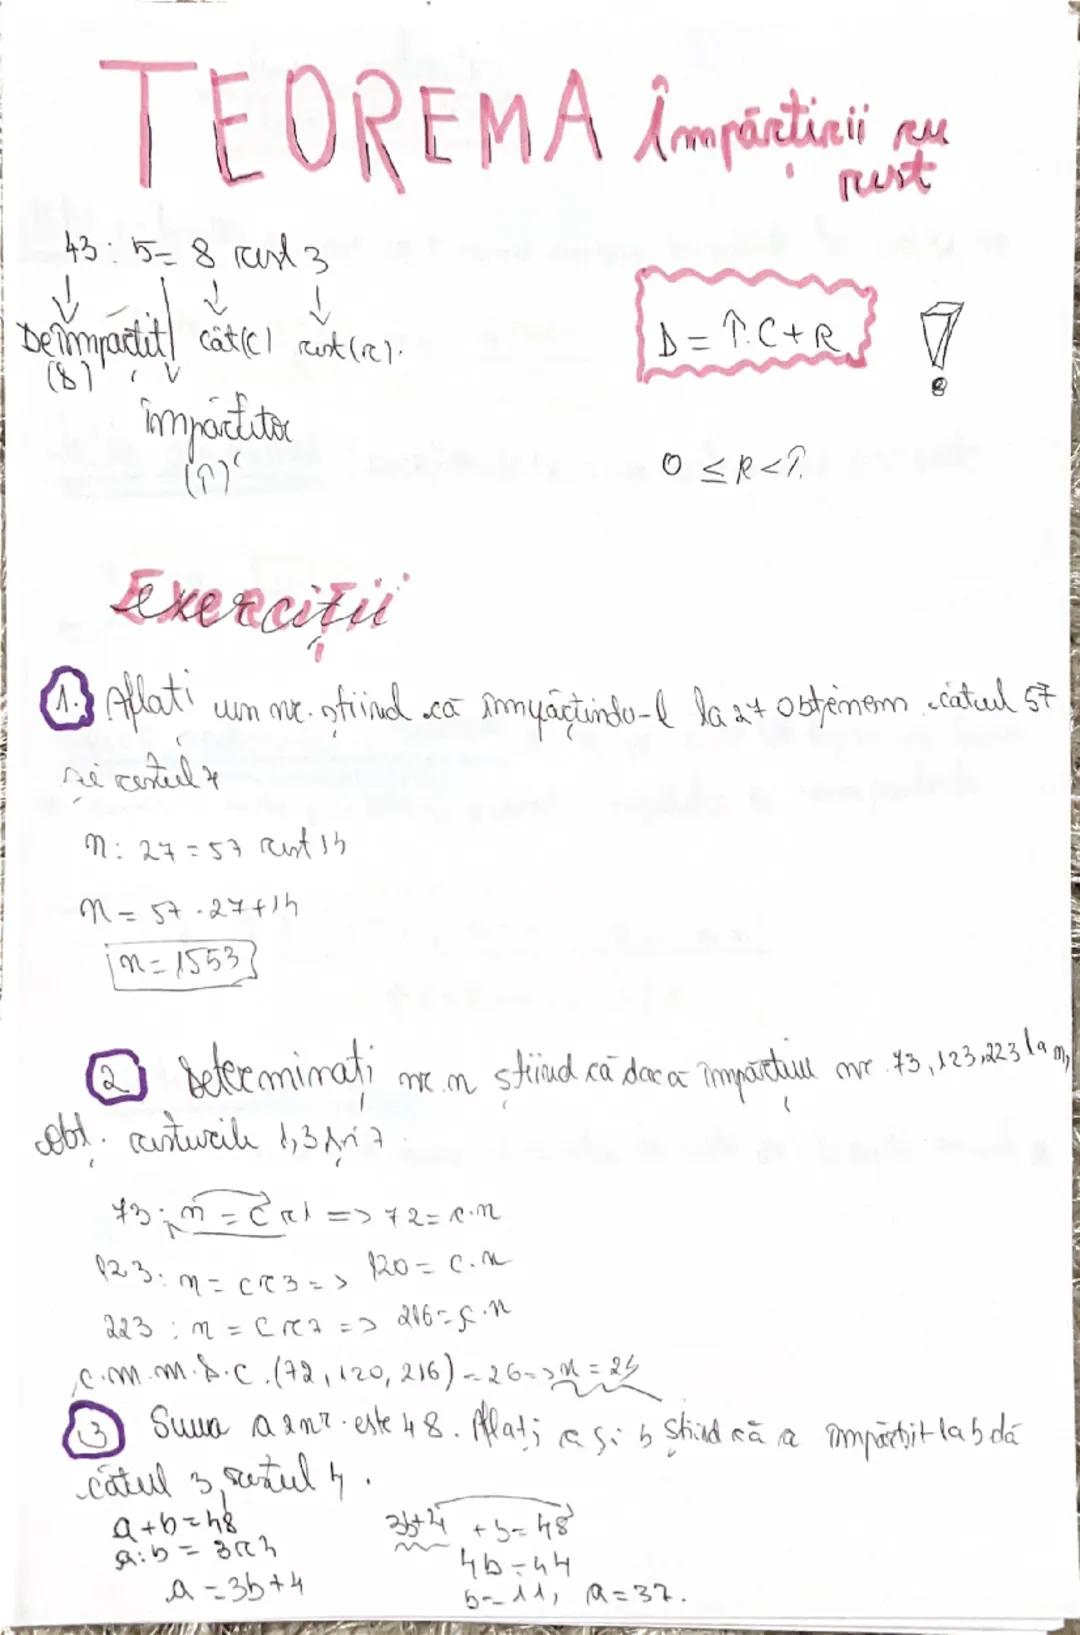 TEOREMA Împărțirii cu
rest
43 : 5 = 8 rest 3
Deîmpărțit cât(c) rest(r).
împărțitor
(Î)
D = Î·C+R
0 ≤ R < Î
Exerciții
1. Aflați un nr. știind că împărțindu-l la 27 obținem câtul 57
și restul
n : 27 = 57 rest 14
n = 57 · 27 + 14
n = 1553
2 Determinați nr. n știind că dacă împărțim nr. 73, 123, 223 la n,
obț. resturile 1, 3 și 7.
73 : n = c r 1 => 72 = c·n
123 : n = c r 3 => 120 = c·n
223 : n = c r 7 => 216 = c·n
c.m.m.d.c. (72, 120, 216) = => n = 24
3 Suma a 2 nr. este 48. Aflați a și b știind că a împărțit la b dă
câtul 3, restul 4.
a + b = 48
a : b = 3 r 4
a = 3b + 4
3b+4 + b = 48
4b = 44
b = 11, a = 37.